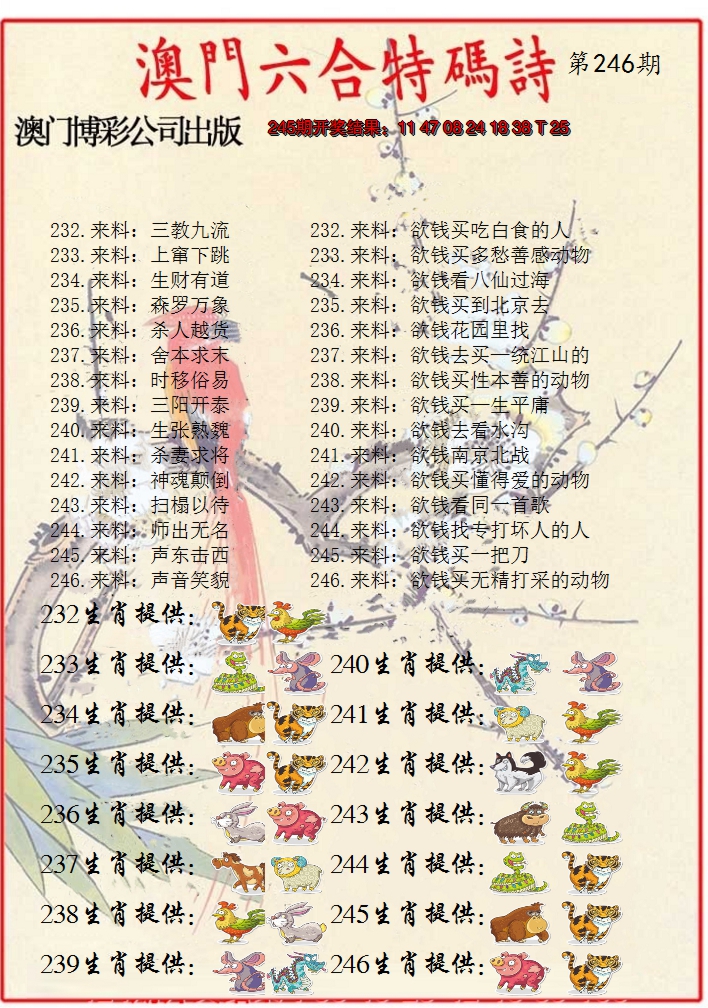 澳門六合特碼詩 第246期
澳门博彩公司出版 245期开奖结果：11 47 08 24 18 38 T 25
232.来料：三教九流 232.来料：欲钱买吃白食的人
233.来料：上窜下跳 233.来料：欲钱买多愁善感动物
234.来料：生财有道 234.来料：欲钱看八仙过海
235.来料：森罗万象 235.来料：欲钱买到北京去
236.来料：杀人越货 236.来料：欲钱花园里找
237.来料：舍本求末 237.来料：欲钱去买一统江山的
238.来料：时移俗易 238.来料：欲钱买性本善的动物
239.来料：三阳开泰 239.来料：欲钱买一生平庸
240.来料：生张熟魏 240.来料：欲钱去看水沟
241.来料：杀妻求将 241.来料：欲钱南京北战
242.来料：神魂颠倒 242.来料：欲钱买懂得爱的动物
243.来料：扫榻以待 243.来料：欲钱看同一首歌
244.来料：师出无名 244.来料：欲钱找专打坏人的人
245.来料：声东击西 245.来料：欲钱买一把刀
246.来料：声音笑貌 246.来料：欲钱买无精打采的动物
232生肖提供：
233生肖提供： 240生肖提供：
234生肖提供： 241生肖提供：
235生肖提供： 242生肖提供：
236生肖提供： 243生肖提供：
237生肖提供： 244生肖提供：
238生肖提供： 245生肖提供：
239生肖提供： 246生肖提供：